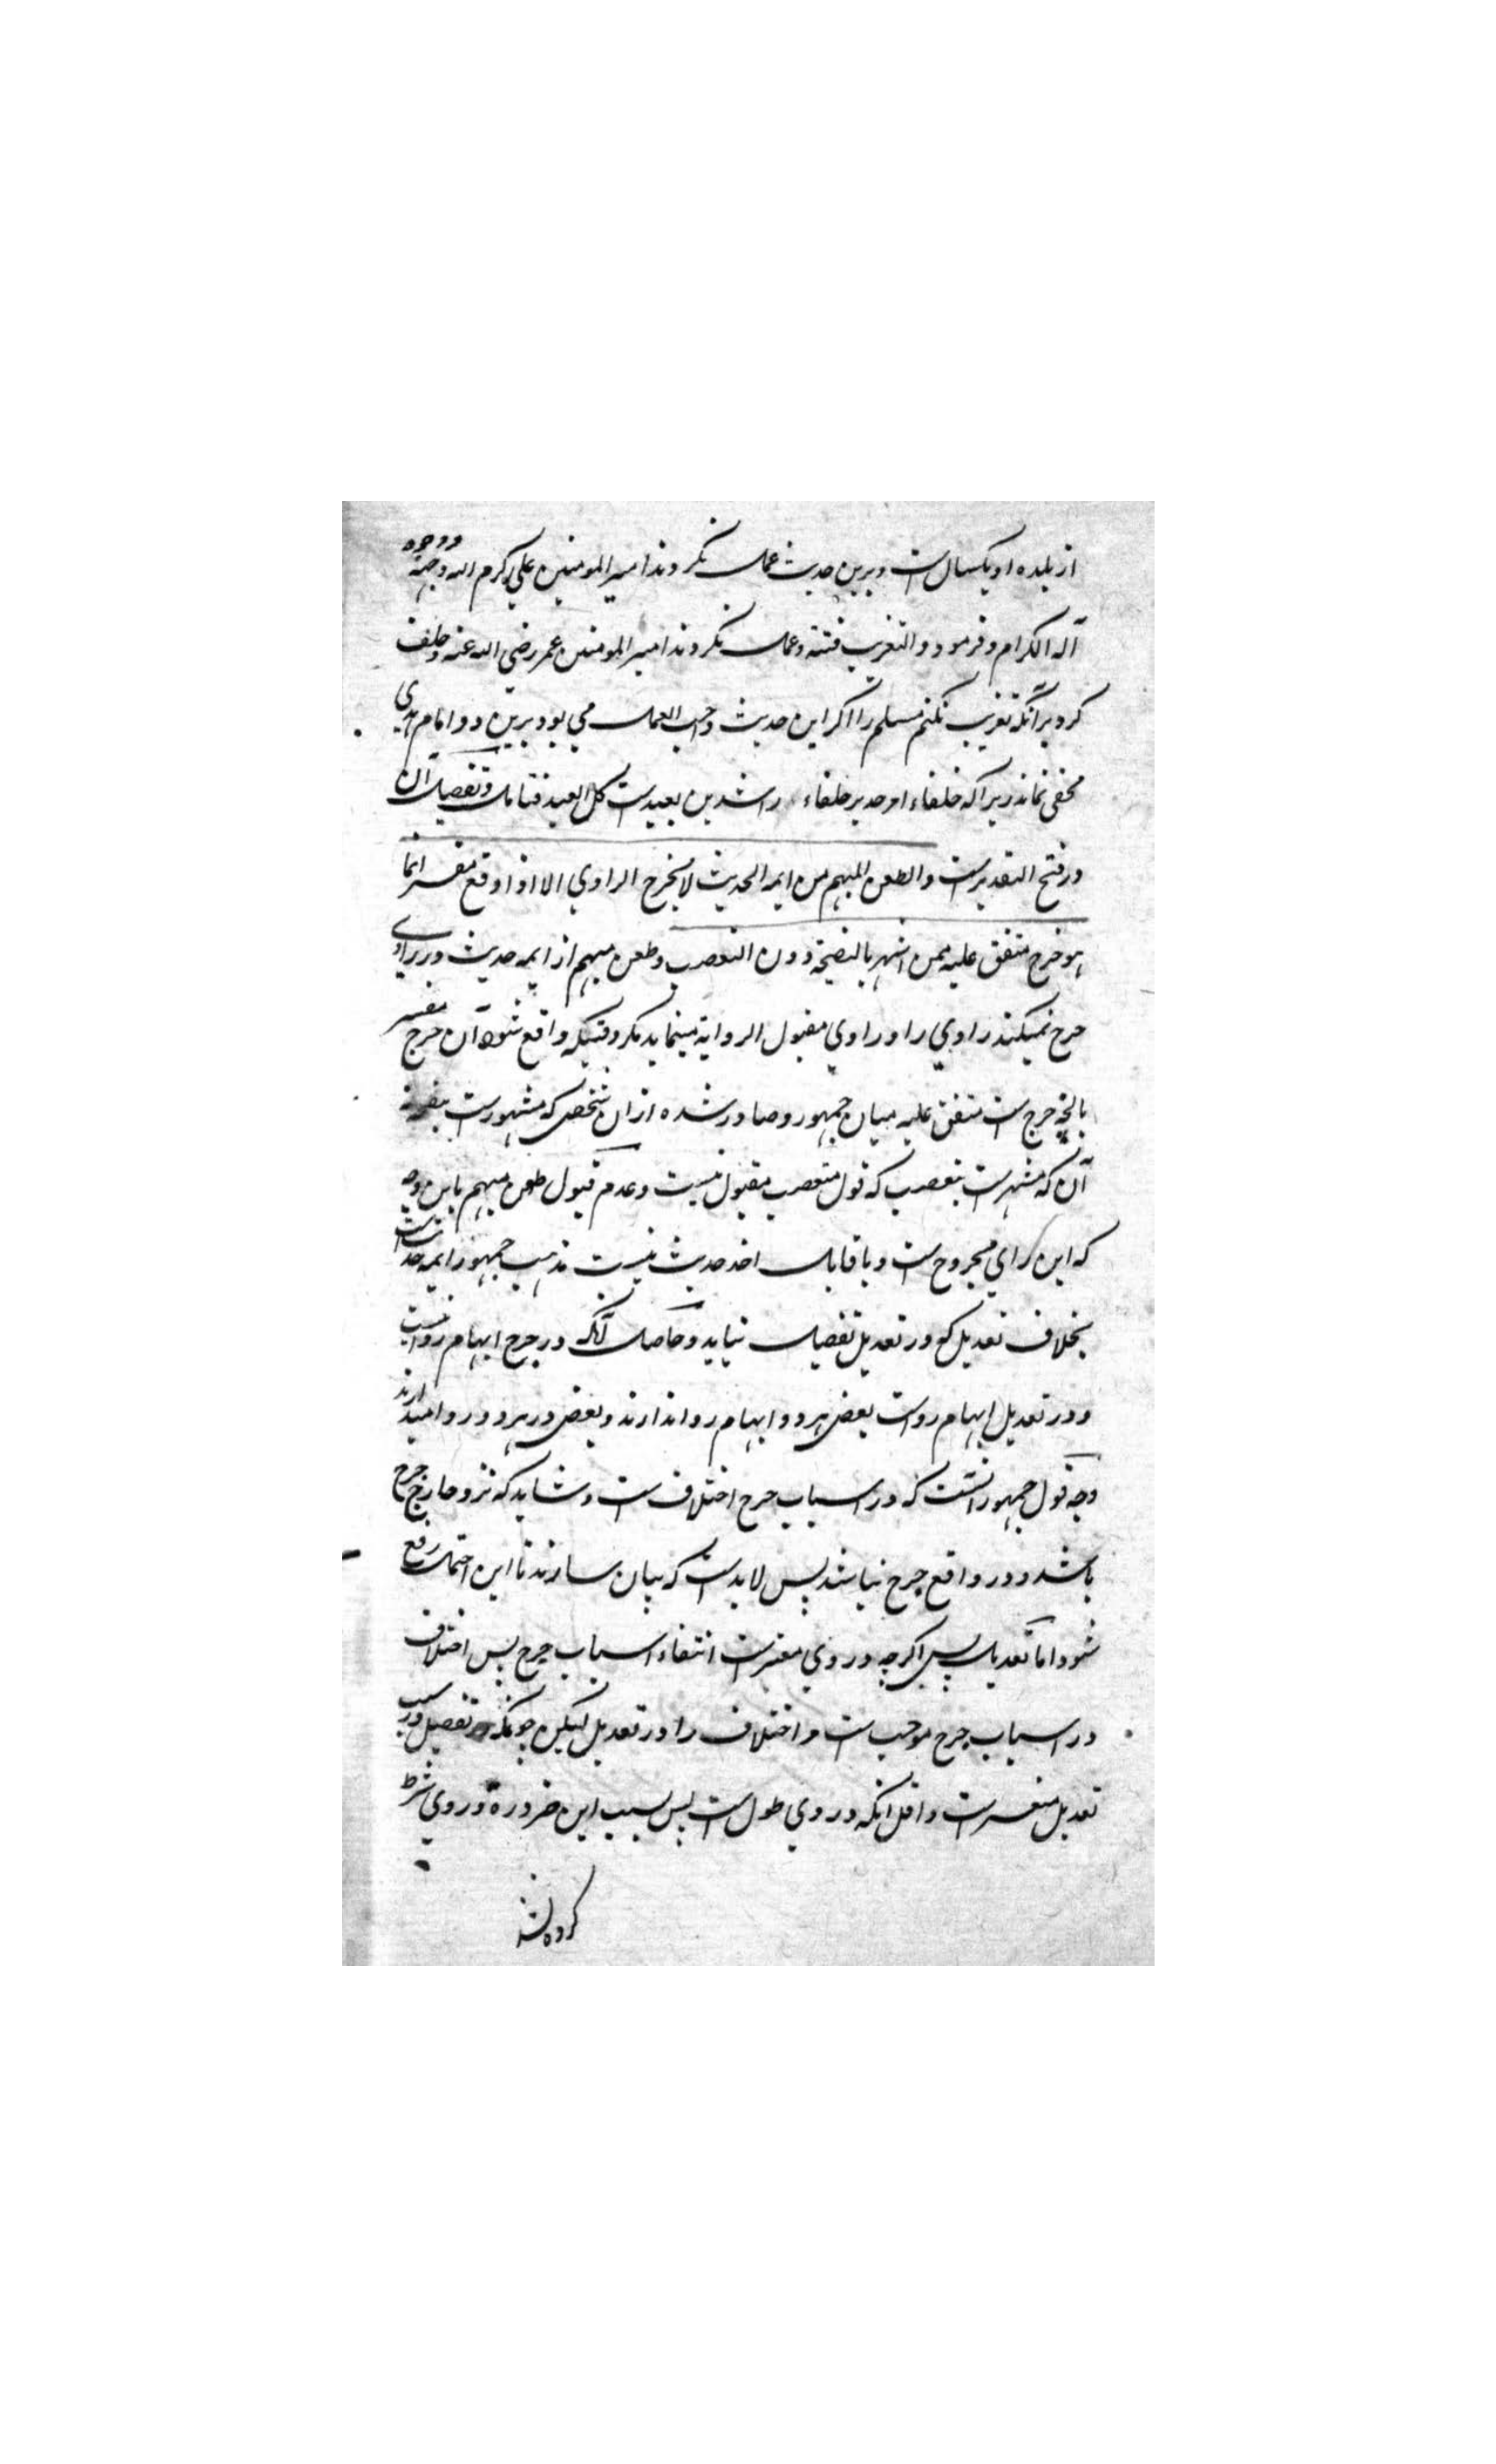 از بلده او یکسال است و برین حدیث عمل نکردند امیر المومنین علی کرم الله وجهه و وجوه
آله الکرام و فرمود و التغریب فتنه و عمل نکردند امیر المومنین عمر رضی الله عنه و حلف
کرد برآنکه تغریب نکنم مسلم را اگر این حدیث واجب العمل می بود برین دو امام هدی
مخفی نماند زیرا که خلفاء امر حد بر خلفاء راشدین بعید است کل البعید فتامل و تفصیل آن
در فتح القدیر است و الطعن المبهم من ایمه الحدیث لا یجرح الراوی الا اذا وقع مفسرا بما
هو جرح متفق علیه ممن اشتهر بالنصیحة دون التعصب و طعن مبهم از ایمه حدیث در راوی
جرح نمیکند راوی را و راوی مقبول الروایة مینماید مگر وقتیکه واقع شود آن جرح مفسر
بانچه جرح است متفق علیه میان جمهور و صادر شده از آن شخص که مشهور است
آن که مشهر است بتعصب که قول متعصب مقبول نیست و عدم قبول طعن مبهم باین وجه
که این رای مجروح است و یا قابل اخذ حدیث نیست مذهب جمهور ایمه حدیث است
بخلاف تعدیل که در تعدیل تفصیل نباید و حاصل آنکه در جرح ابهام روا نیست
و در تعدیل ابهام رواست بعض هر دو ابهام روا ندارند و بعض در هر دو روا میدارند
وجه قول جمهور آنست که در اسباب جرح اختلاف است و شاید که نزد جارح جرح
باشد و در واقع جرح نباشد پس لابد است که بیان سازند تا این احتمال رفع
شود اما تعدیل پس اگرچه در وی معتبر است انتفاء اسباب جرح پس اختلاف
در اسباب جرح موجب است اختلاف را در تعدیل لیکن چونکه تفصیل در سبب
تعدیل متعسر است و اقل آنکه در وی طول است پس بسبب این ضرورة در وی شرط
کرده نشد